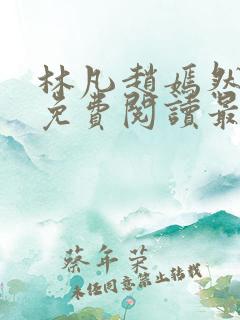 林凡趙嫣然
免費閱讀最
蔡年荣
未经同意禁止转载